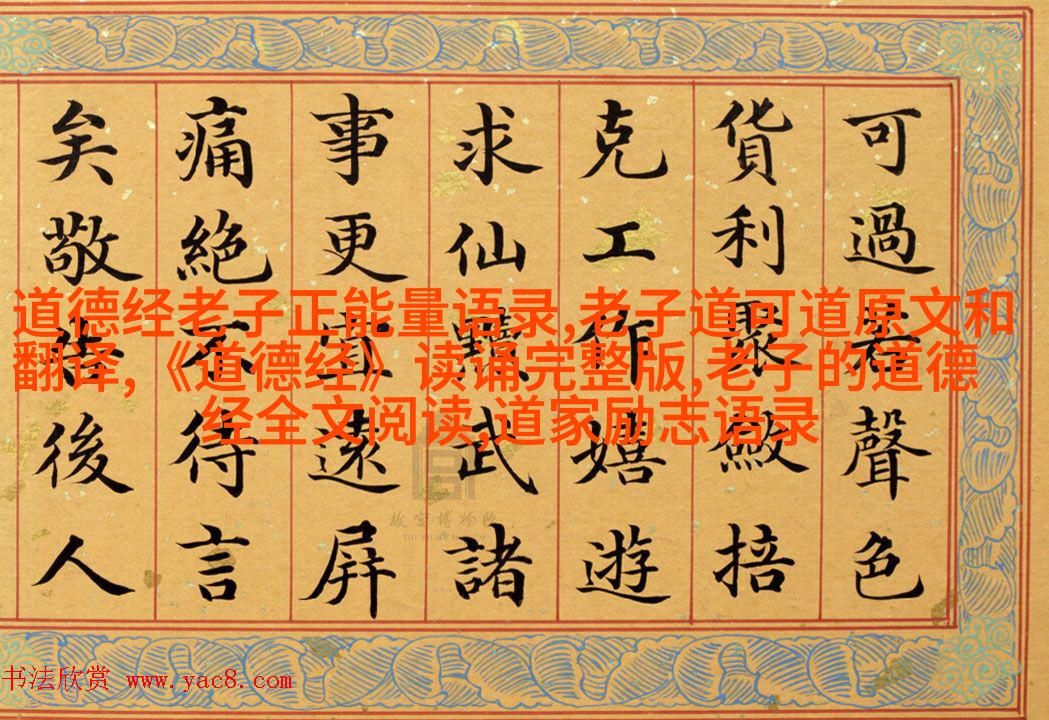 可過若聲色
貨利聚斂掊
克工作嬉遊
求仙黷武諸
事更宜遠屏
痛絕不待言
矣敬後人
道德经老子正能量语录,老子道可道原文和
翻译,《道德经》读诵完整版,老子的道德
经全文阅读,道家励志语录
故宫博物院
THE PALACE MUSEUM
书法欣赏 www.yac8.com